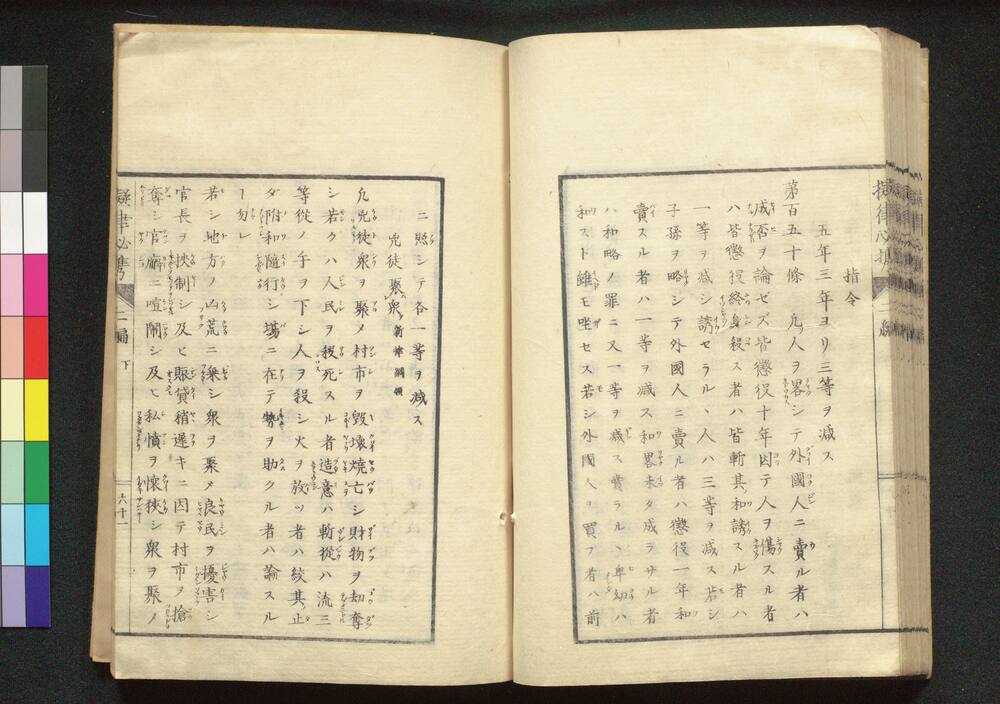 五年三年ヨリ三等ヲ減ス
指令
第百五十條 凡人ヲ畧シテ外國人ニ賣ル者ハ
成否ヲ論ゼズ皆懲役十年因テ人ヲ傷スル者
ハ皆懲役終身殺ス者ハ皆斬其和誘スル者ハ
一等ヲ減シ誘セラルヽ人ハ三等ヲ減ス若シ
子孫ヲ略シテ外國人ニ賣ル者ハ懲役一年和
賣スル者ハ一等ヲ減ス和畧未タ成ラサル者
ハ和略ノ罪ニ又一等ヲ減ス賣ラルヽ卑幼ハ
和スト雖モ坐セス若シ外國人ヲ買フ者ハ前
ニ照シテ各一等ヲ減ス
兇徒聚衆 新律綱領
凡兇徒衆ヲ聚メ村市ヲ毀壊燒亡シ財物ヲ劫奪
シ若クハ人民ヲ殺死スル者造意ハ斬從ハ流三
等從ノ手ヲ下シ人ヲ殺シ火ヲ放ツ者ハ絞其止
ダ附和隨行シ場ニ在テ勢ヲ助クル者ハ論スル
ヿ勿レ
若シ地方ノ凶荒ニ乗シ衆ヲ聚メ良民ヲ擾害シ
官長ヲ挾制シ及ヒ賑貸稍遲キニ因テ村市ヲ搶
奪シ官廨ニ喧閙シ及ヒ私憤ヲ懷挾シ衆ヲ聚メ
擬律必携 二編 下 六十一